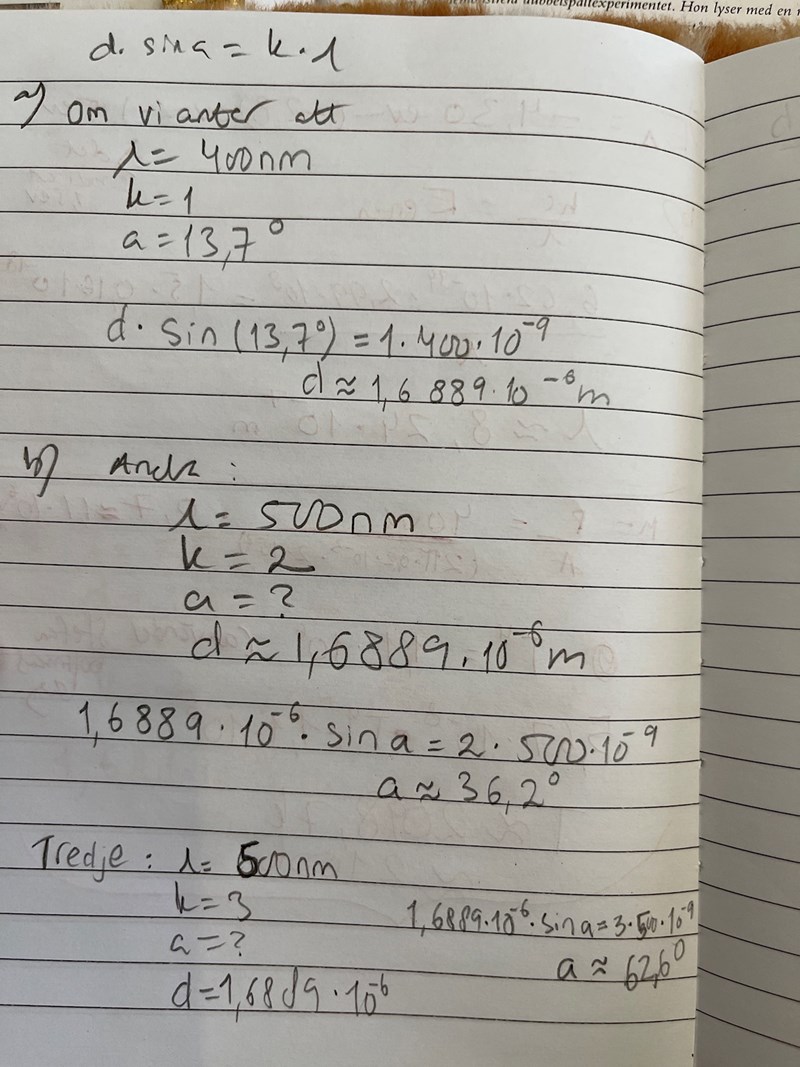 dubbelspaltexperimentet. Hon lyser med en
d. sin a = k · λ
a) Om vi antar att
λ = 400nm
k = 1
a = 13,7°
d · sin (13,7°) = 1 · 400 · 10⁻⁹
d ≈ 1,6889 · 10⁻⁶ m
b) Andra :
λ = 500nm
k = 2
a = ?
d ≈ 1,6889 · 10⁻⁶ m
1,6889 · 10⁻⁶ · sin a = 2 · 500 · 10⁻⁹
a ≈ 36,2°
Tredje : λ = 500nm
k = 3
1,6889 · 10⁻⁶ · sin a = 3 · 500 · 10⁻⁹
a = ?
a ≈ 62,6°
d = 1,6889 · 10⁻⁶